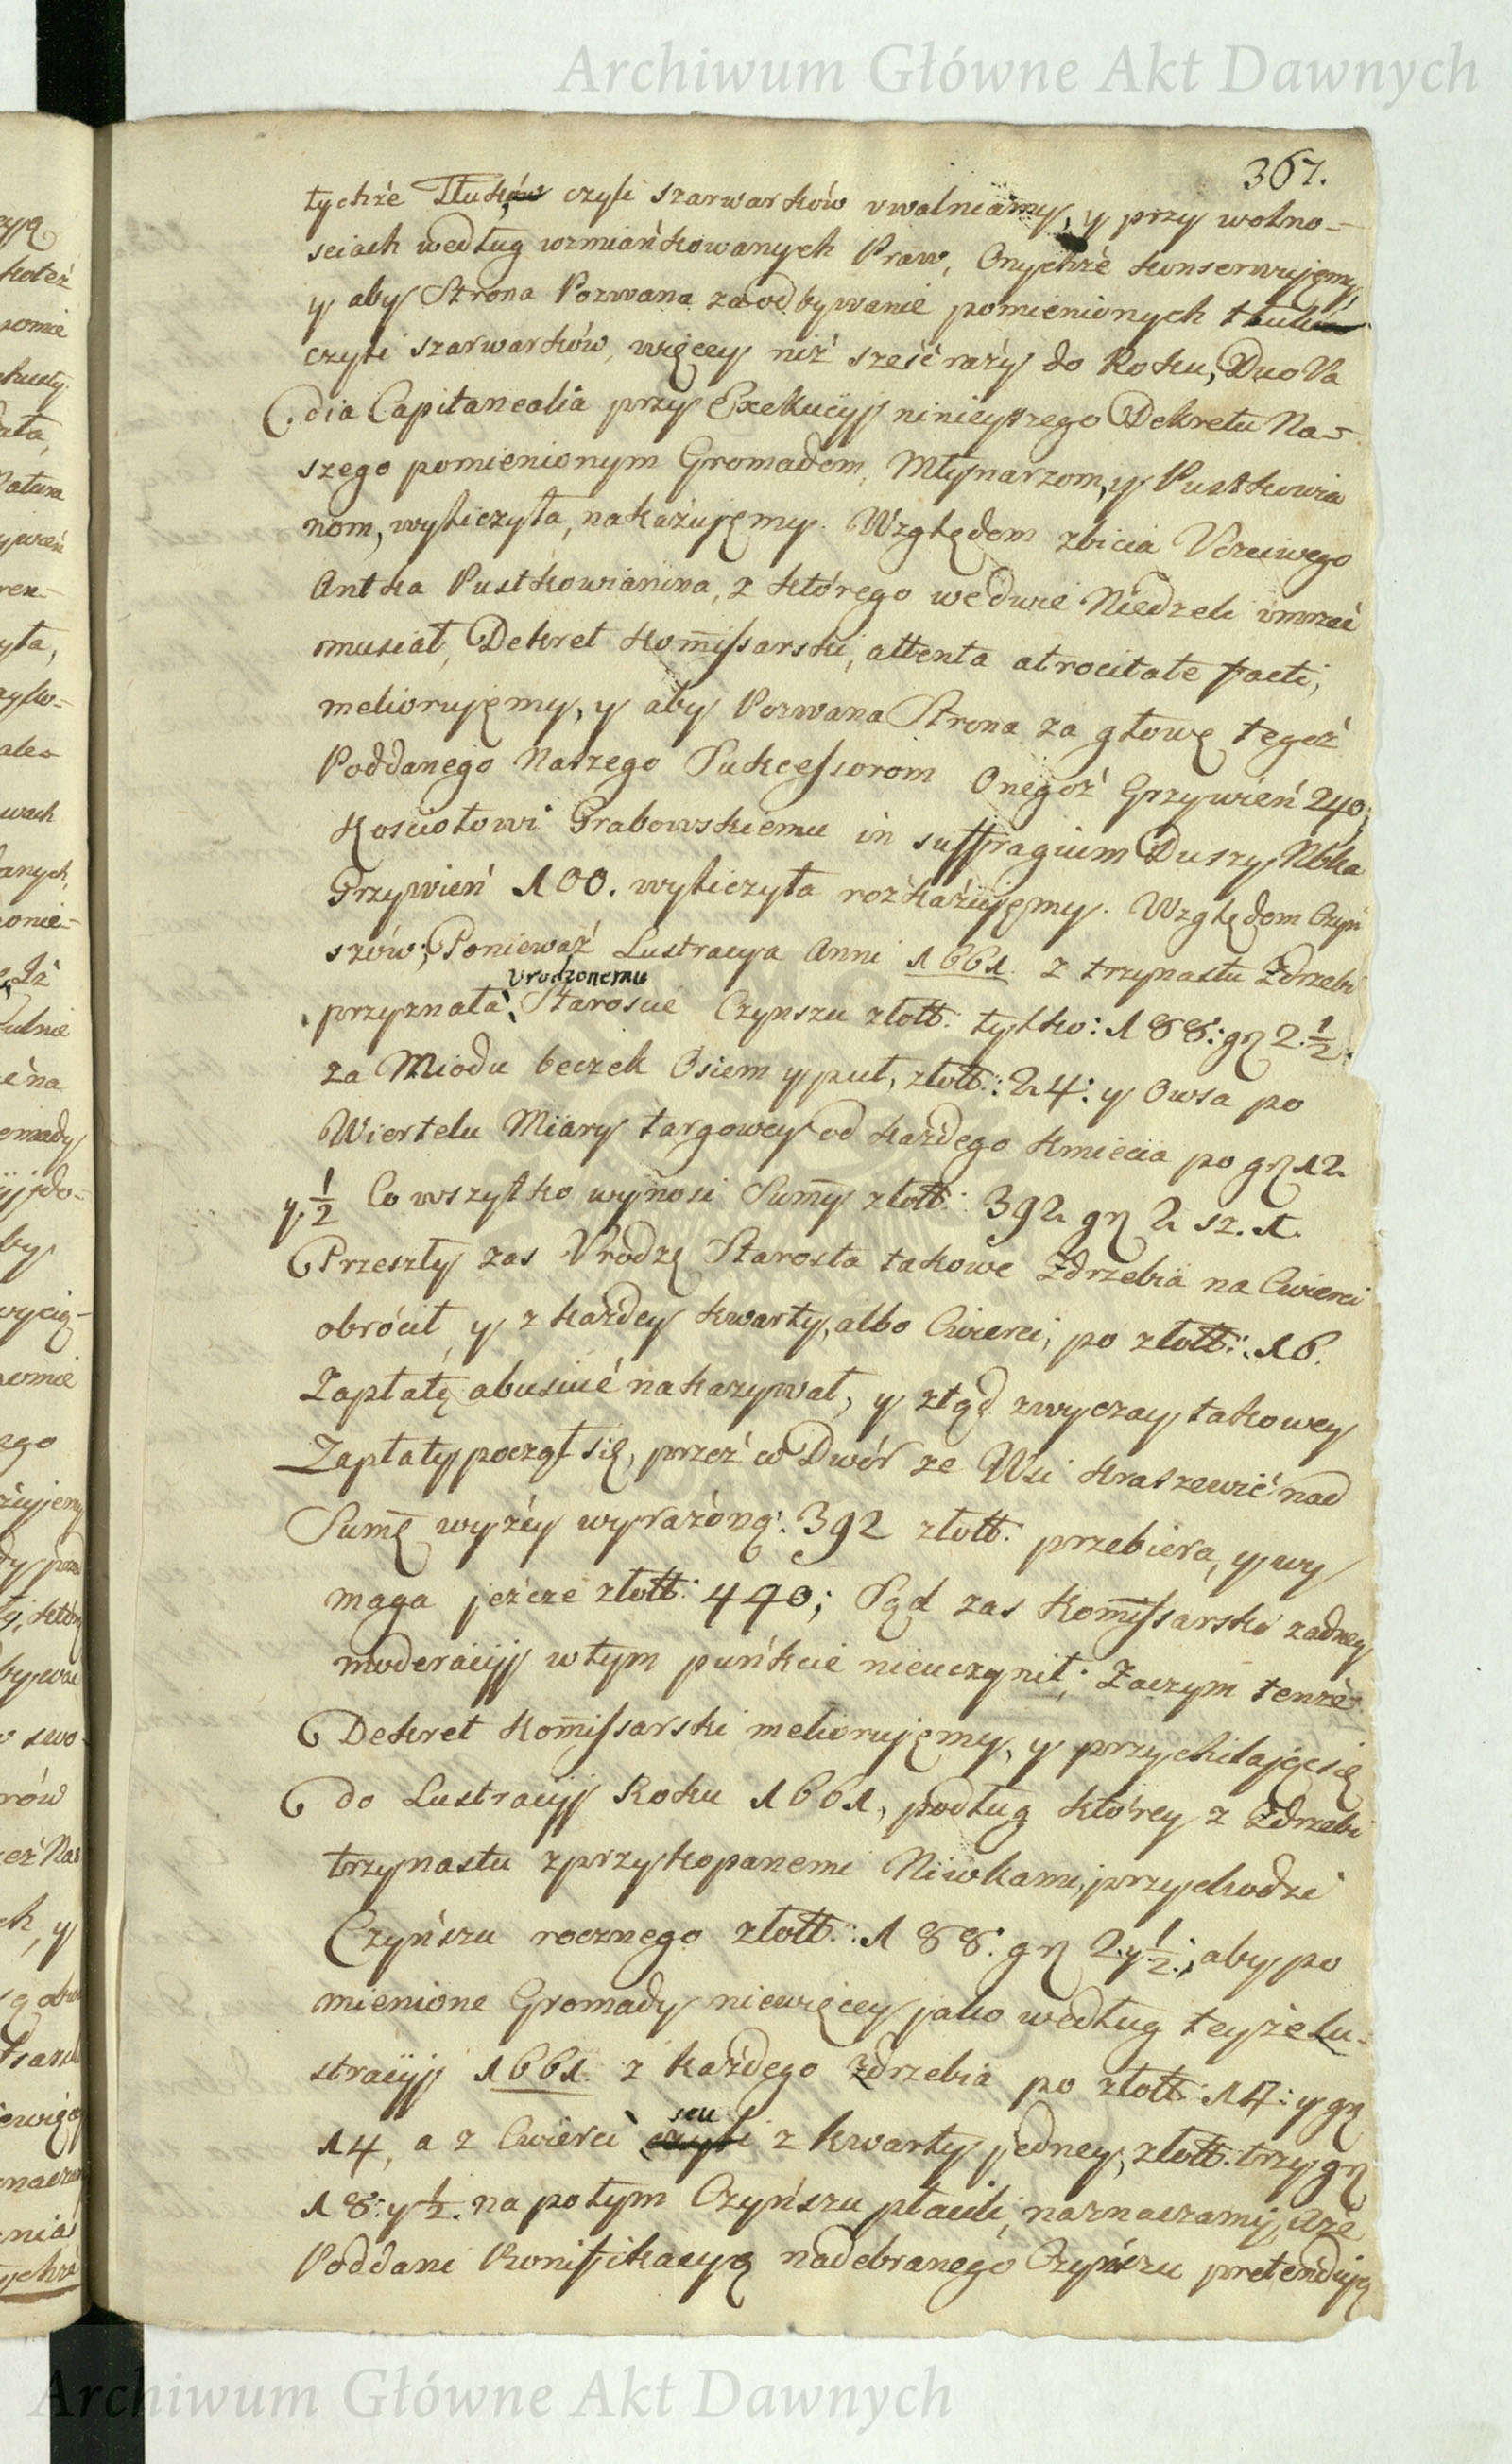 Archiwum Główne Akt Dawnych
367.
tychże Tłuk czyli szarwarków uwalniamy, y przy wolno-
sciach według wzmiańkowanych Praw, Onychże konserwujęmy,
y aby Strona Pozwana za odbywanie pomienionych tłuk
czyli szarwarków, więcey niż sześć razy do Roku, Duo Va
dia Capitanealia przy Exekucyi ninieyszego Dekretu Na-
szego pomienionym Gromadom, Młynarzom, y Pustkowia
nom, wyliczyła, nakażujęmy. Względem zbicia Uczciwego
Antka Pustkowianina, z którego we dwie Niedzeli umrzać
musiał, Dekret Kom̃issarski, attenta atrocitate facti,
meliorujęmy, y aby Pozwana Strona za głowę tegoż
Poddanego Naszego Sukcessorom Onegoż Grzywień 240;
Kościołowi Grabowskiemu in suffragium Duszy Nbka
Grzywień 100. wyliczyła rozkażujęmy. Względem Czyn
szów; Ponieważ Lustracya Anni 1661. z trzynastu Zdrzebi
Urodzonemu
przyznała Staroscie Czynszu złott: tylko: 188: gr̃ 2. 1/2.
za Miodu beczek Osiem y puł, złott: 24: y Owsa po
Wiertelu Miary targowey od każdego Kmiecia po gr̃ 12
y 1/2 Co wszytko wynosi Sum̃y złott: 392 gr̃ 2 sz. 1.
Przeszły zas Urodzę Starosta takowe Zdrzebia na Cwierci
obrócił, y z każdey kwarty, albo Cwierci, po złott: 16.
Zapłatę abusiué nakazywał, y ztąd zwyczay takowey
Zapłaty począł się, przez co Dwór ze Wsi Kraszewic nad
Sum̃ę wyżey wyrażóną: 392 złott: przebiera, y wy
maga jeżcze złott: 440; Sąd zas Kom̃issarski żadney
moderacyi w tym puńkcie nieuczynił; Zaczym tenże
Dekret Kom̃issarski meliorujęmy, y przychilając się
do Lustracyi Roku 1661, podług którey z Zdrzebi
trzynastu z przykopanemi Niwkami, przychodzi
Czyńszu rocznego złott: 188. gr̃ 2 y 1/2.; aby po
mienione Gromady niewięcey jako według teyże Lu-
stracyi 1661. z każdego Zdrzebia po złott: 14: y gr̃
seu
14, a z Cwierci czyli z kwarty jedney, złott: trzy gr̃
18: y 1/2. na potym Czyńszu płacili, naznaczamy, Iże
Poddani Bonifikacyą nadebranego Czyńszu pretendują
Archiwum Główne Akt Dawnych